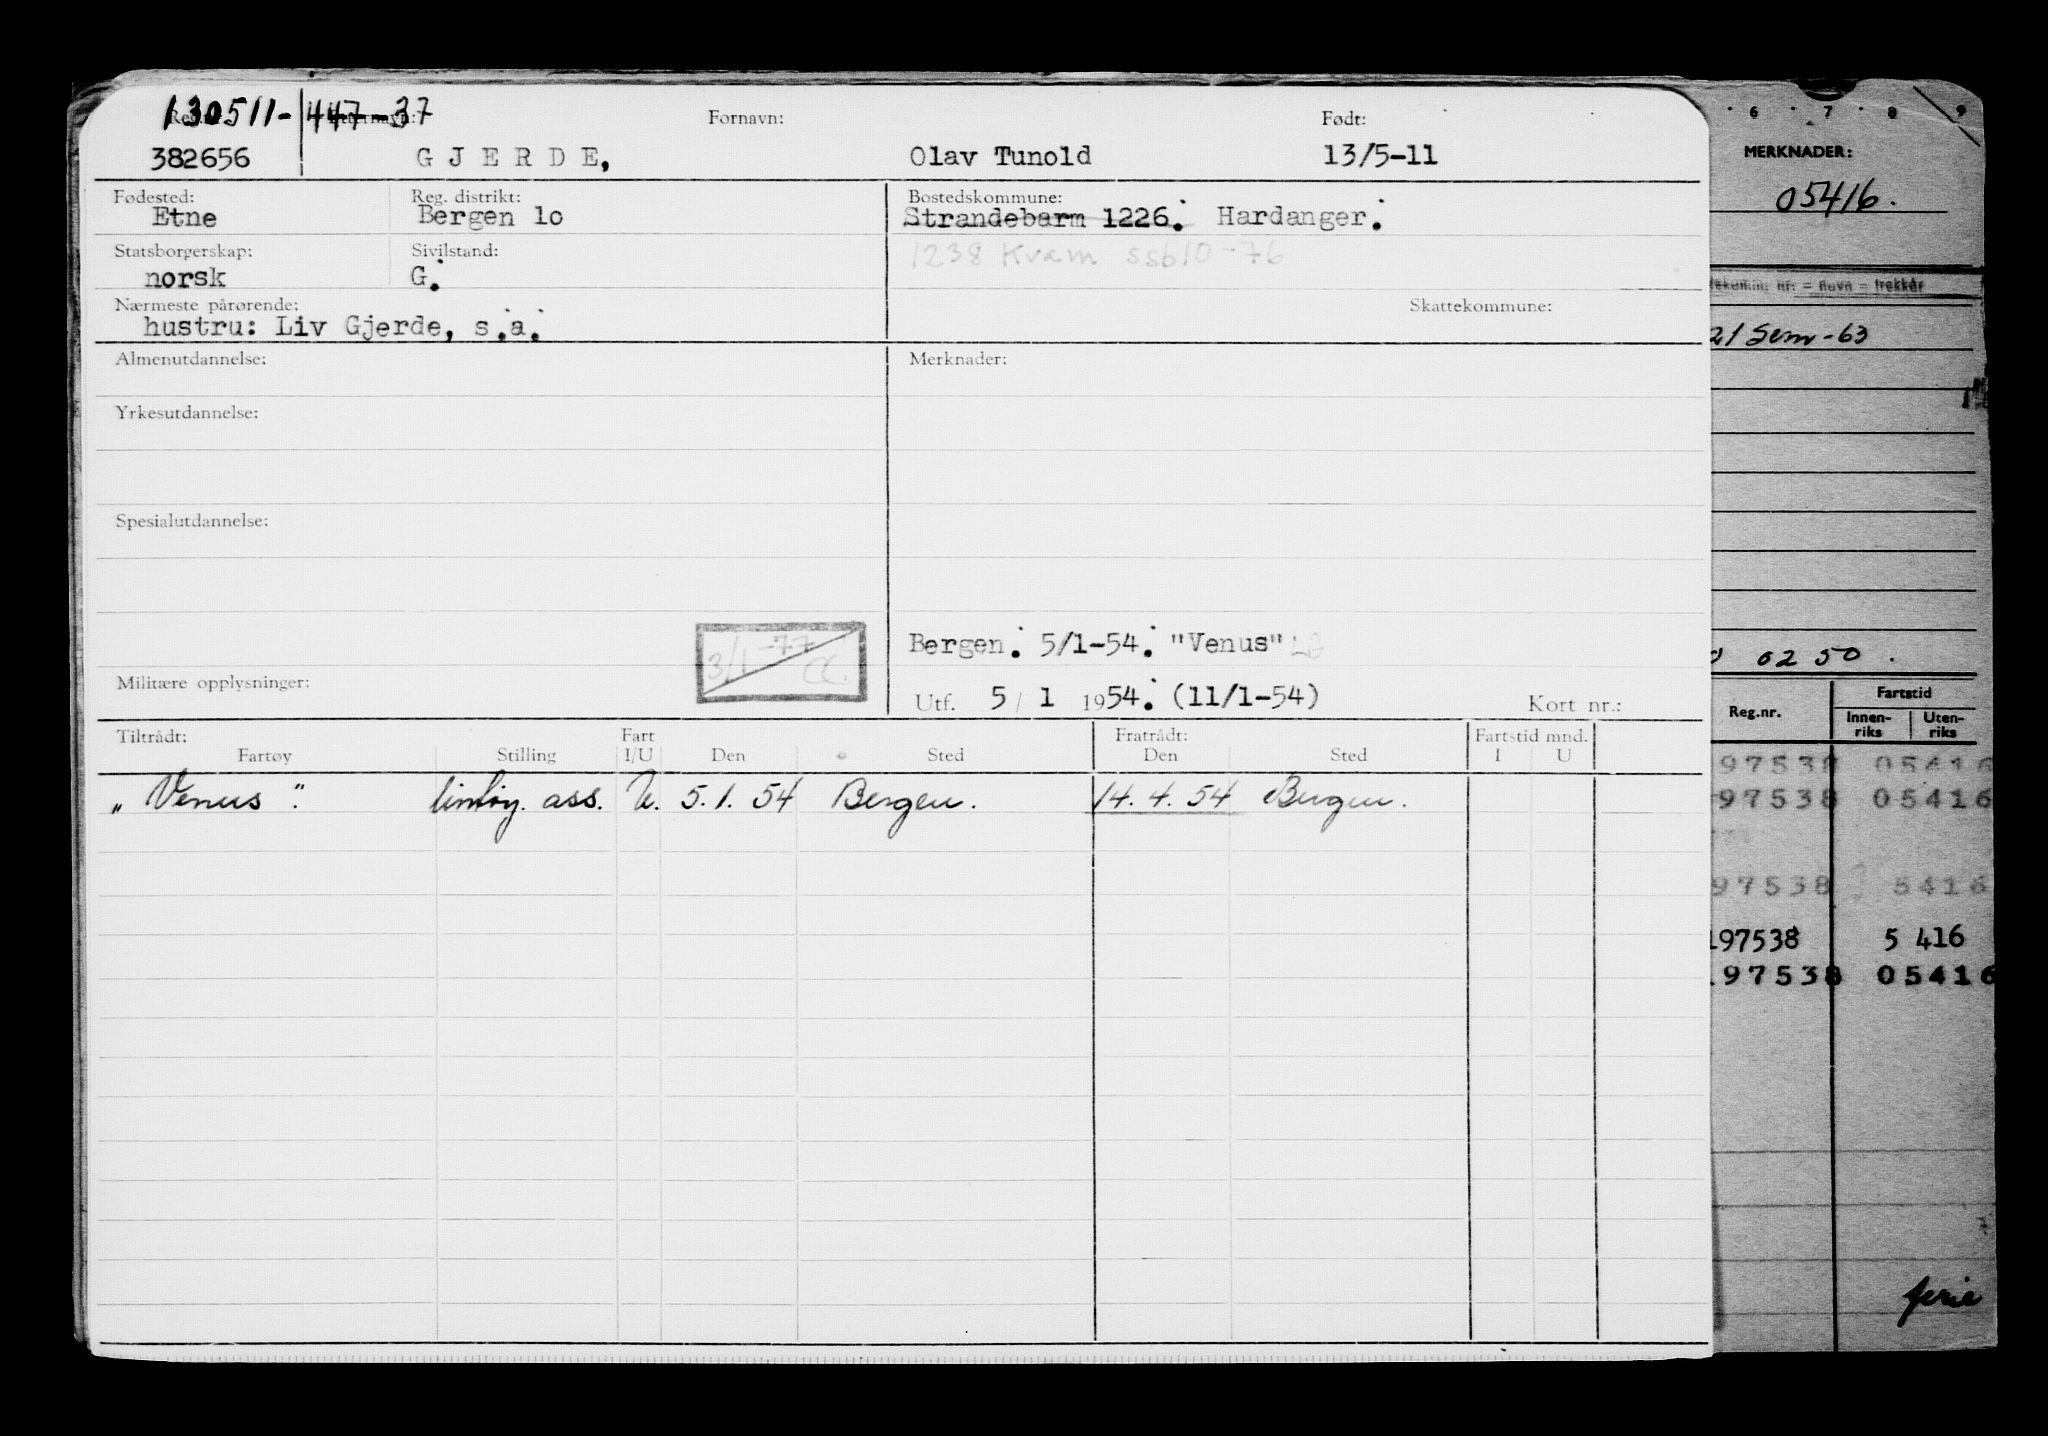 130511-44737
Reg.nr. Etternavn: Fornavn: Født:
382656 GJERDE, Olav Tunold 13/5-11
Fødested: Reg. distrikt: Bostedskommune:
Etne Bergen 1o Strandebarm 1226. Hardanger.
Statsborgerskap: Sivilstand: 1238 Kvam ssb10-76
norsk G.
Nærmeste pårørende: Skattekommune:
hustru: Liv Gjerde, s.a.
Almenutdannelse: Merknader:
Yrkesutdannelse:
Spesialutdannelse:
3/1-77 CC.
Bergen. 5/1-54. "Venus"
Militære opplysninger:
Utf. 5/1 1954. (11/1-54) Kort nr.:
Tiltrådt: Fart Fratrådt: Fartstid mnd.
Fartøy Stilling I/U Den Sted Den Sted I U
"Venus". ass. U. 5.1.54 Bergen. 14.4.54 Bergen.
6 7 8 9
MERKNADER:
05416.
nr: = navn = trekkår
21 Sem-63
6250.
Reg.nr. Fartstid
Innen-riks Uten-riks
97538 05416
97538 05416
97538 5416
197538 5 416
197538 05416
ferie